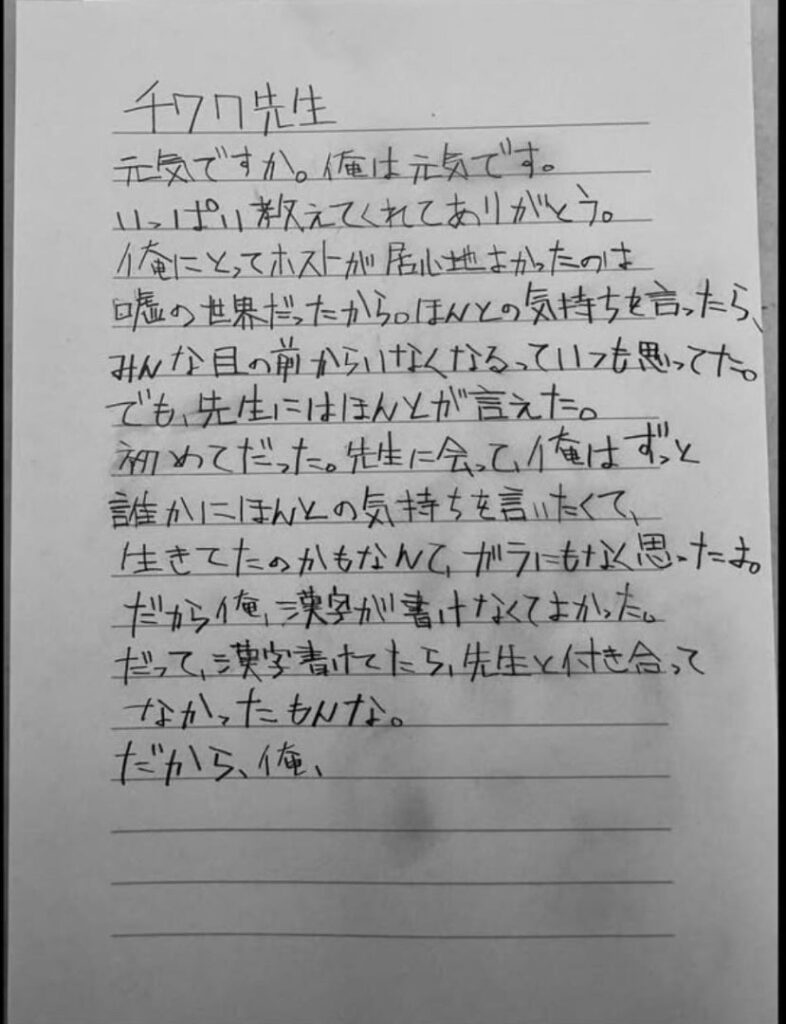 チワワ先生
元気ですか。俺は元気です。
いっぱい教えてくれてありがとう。
俺にとってホストが居心地よかったのは
嘘の世界だったから。ほんとの気持ちを言ったら、
みんな目の前からいなくなるっていつも思ってた。
でも、先生にはほんとが言えた。
初めてだった。先生に会って、俺はずっと
誰かにほんとの気持ちを言いたくて、
生きてたのかもなんて、ガラにもなく思ったよ。
だから俺、漢字が書けなくてよかった。
だって、漢字書けてたら、先生と付き合って
なかったもんな。
だから、俺、